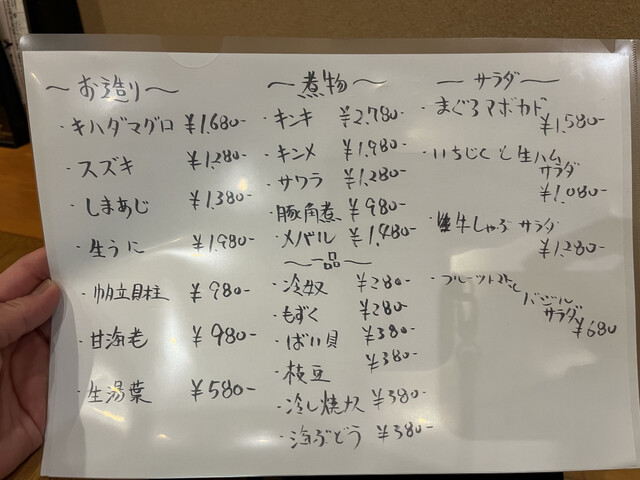 〜お造り〜
・キハダマグロ ¥1,680-
・スズキ ¥1,280-
・しまあじ ¥1,380-
・生うに ¥1,980-
・帆立貝柱 ¥980-
・甘海老 ¥980-
・生湯葉 ¥580-
〜煮物〜
・キンキ ¥2,780-
・キンメ ¥1,980-
・サワラ ¥1,280-
・豚角煮 ¥980-
・メバル ¥1,480-
〜一品〜
・冷奴 ¥280-
・もずく ¥280-
・ばい貝 ¥380-
・枝豆 ¥380-
・冷し焼ナス ¥380-
・海ぶどう ¥380-
〜サラダ〜
・まぐろアボカド
¥1,580-
・いちじくと生ハム
サラダ
¥1,080-
・牛しゃぶサラダ
¥1,280-
・フルーツトマトと
バジル
サラダ
¥680